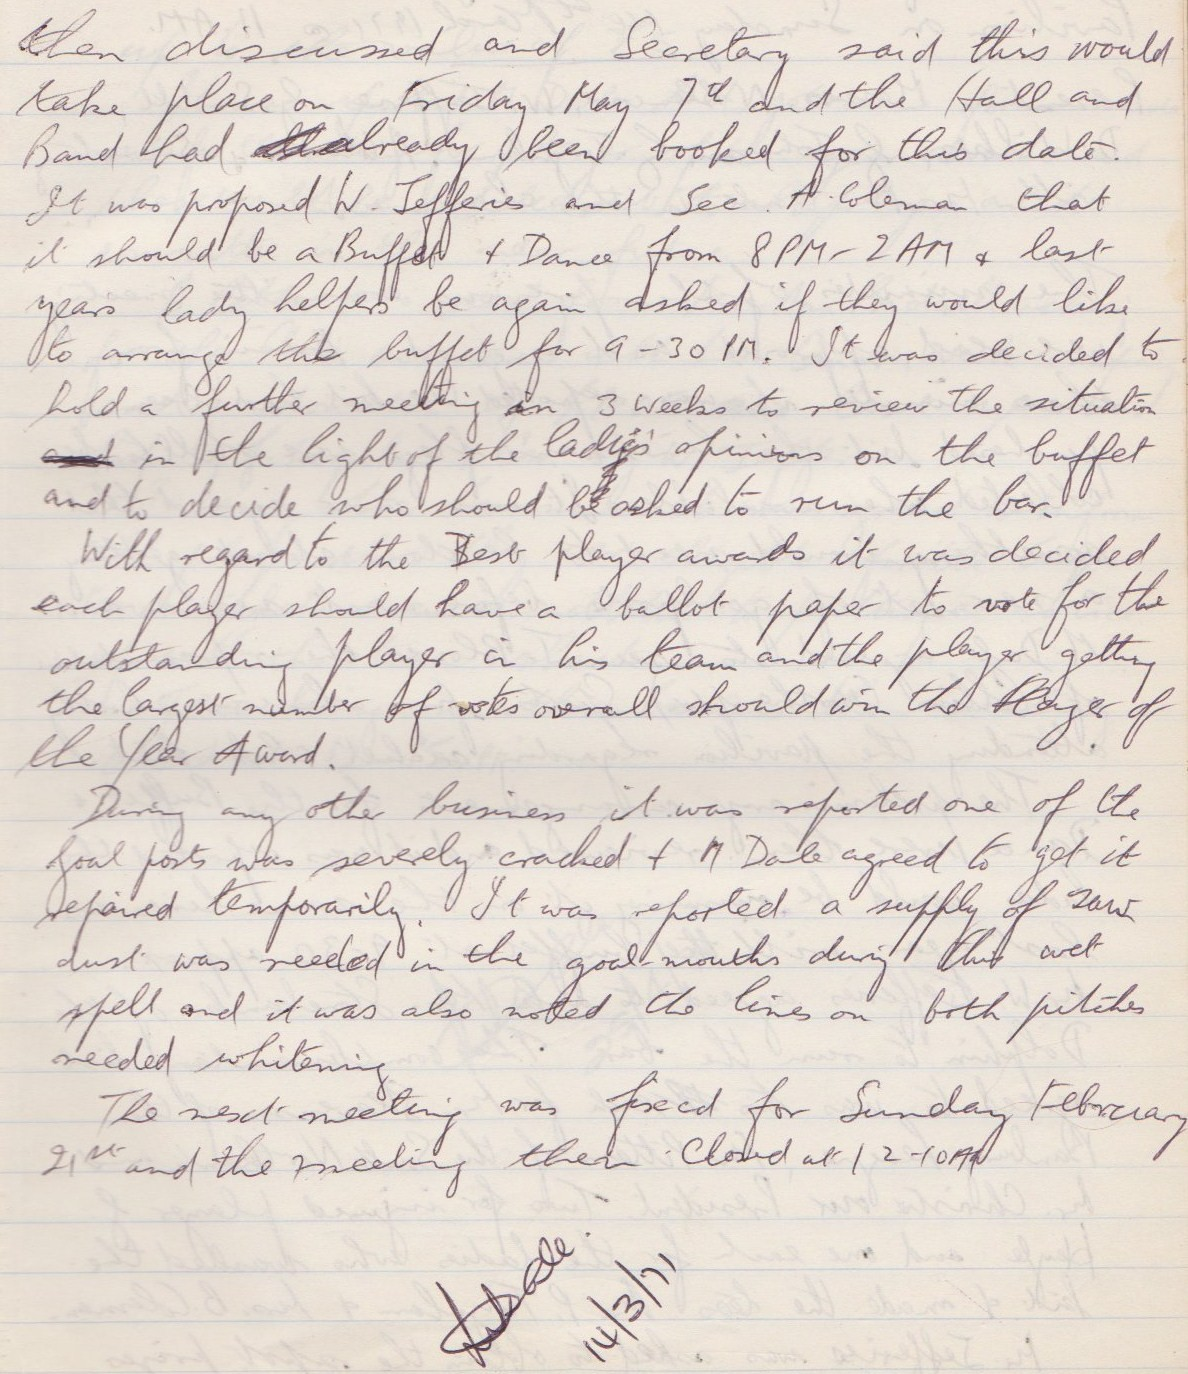 then discussed and Secretary said this would
take place on Friday May 7th and the Hall and
Band had already been booked for this date.
It was proposed W. Jefferies and Sec. A. Coleman that
it should be a Buffet + Dance from 8 PM - 2 AM + last
years lady helpers be again asked if they would like
to arrange the buffet for 9-30 PM. It was decided to
hold a further meeting in 3 weeks to review the situation
in the light of the opinions on the buffet
and to decide who should be asked to run the bar.
With regard to the Best player awards it was decided
each player should have a ballot paper to vote for the
outstanding player in his team and the player getting
the largest number of votes overall should win the Player of
the Year Award.
During any other business it was reported one of the
goal posts was severely cracked + M Dale agreed to get it
repaired temporarily. It was reported a supply of saw
dust was needed in the goal-mouths during this wet
spell and it was also noted the lines on both pitches
needed whitening
The next meeting was fixed for Sunday February
21st and the meeting then closed at 12-10
14/3/71